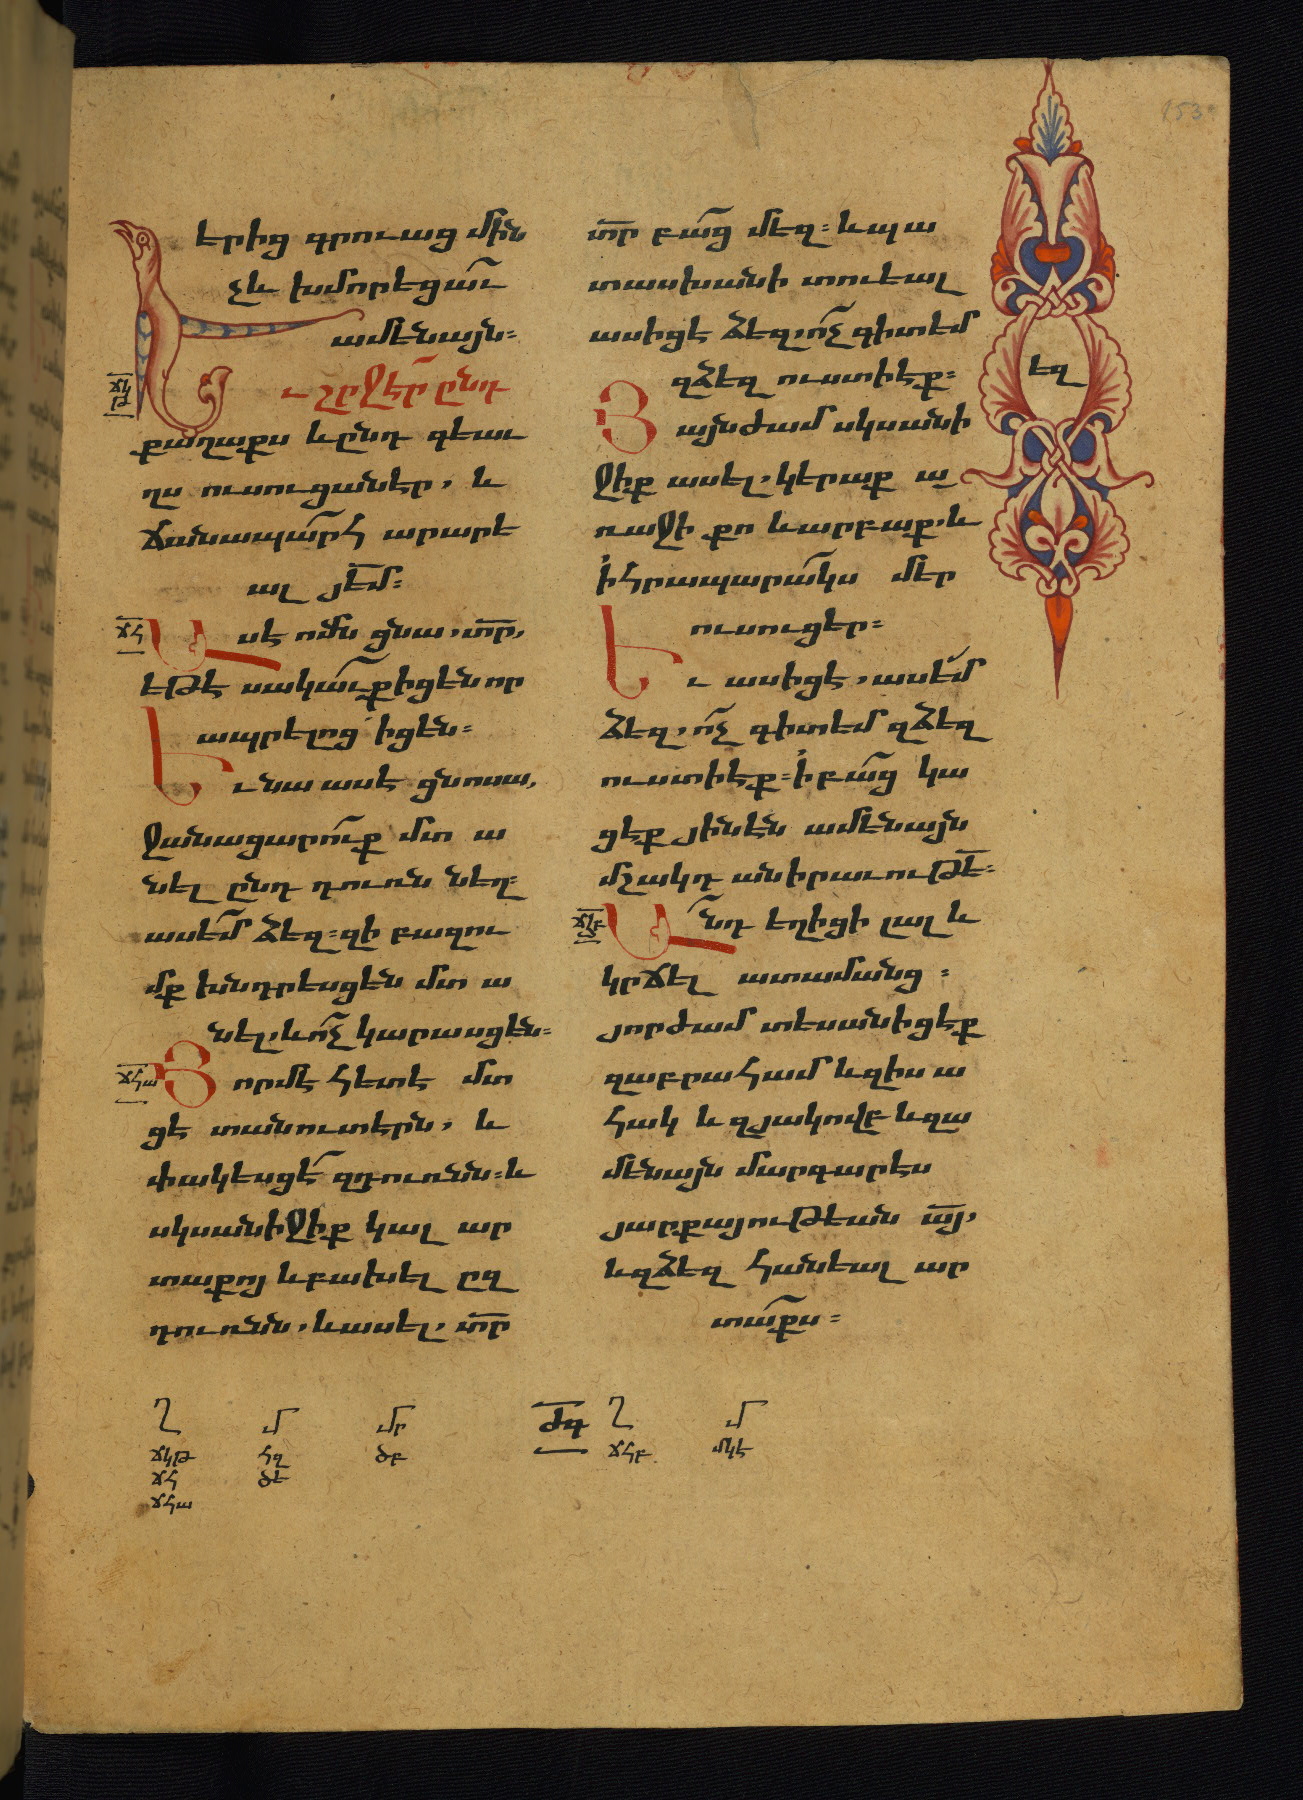 երից գրուաց մինչ
չև խմորեցաւ
ամենայն։
Եւ շրջէր ընդ
քաղաքս և ընդ գեաւ
ղս ուսուցանէր, և
ճանապարհ արարե
ալ յեմ։
Ասէ ոմն ցնա, տր,
եթէ սակաւք իցեն որ
ապրելոց իցեն։
Եւ նա ասէ ցնոսա,
Ջանացարուք մտա
նել ընդ դուռն նեղ։
ասեմ ձեզ։ զի բազու
մք խնդրեսցեն մտ ա
նել, և ոչ կարասցեն։
Յորմէ հետէ մտ
ցէ տանուտերն, և
փակեսցէ զդուռնն։ և
սկսանիջիք կալ ար
տաքոյ և բախել ըզ
դուռնն, և ասել, տր
տր բաց մեզ։ և պա
տասխանի տուեալ
ասիցէ ձեզ, ոչ գիտեմ
զձեզ ուստի էք։
Յայնժամ սկսանի
ջիք ասել, կերաք ա
ռաջի քո և արբաք, և
ի հրապարակս մեր
ուսուցեր։
Եւ ասիցէ, ասեմ
ձեզ, ոչ գիտեմ զձեզ
ուստի էք։ ի բաց կա
ցէք յինէն ամենայն
մշակդ անիրաւութե։
Անդ եղիցի լալ և
կրճել ատամանց։
յորժամ տեսանիցէք
զաբրահամ և զիսա
հակ և զյակովբ և զա
մենայն մարգարէս
յարքայութեան այ,
և զձեզ հանեալ ար
տաքս։
եզ
ճկթ
ճհ
ճհա
ճհբ
Ղ Մ Մր ԺԳ Ղ Մ
ճկթ հզ ծբ ճհբ մկե
ճհ ծե
ճհա
153